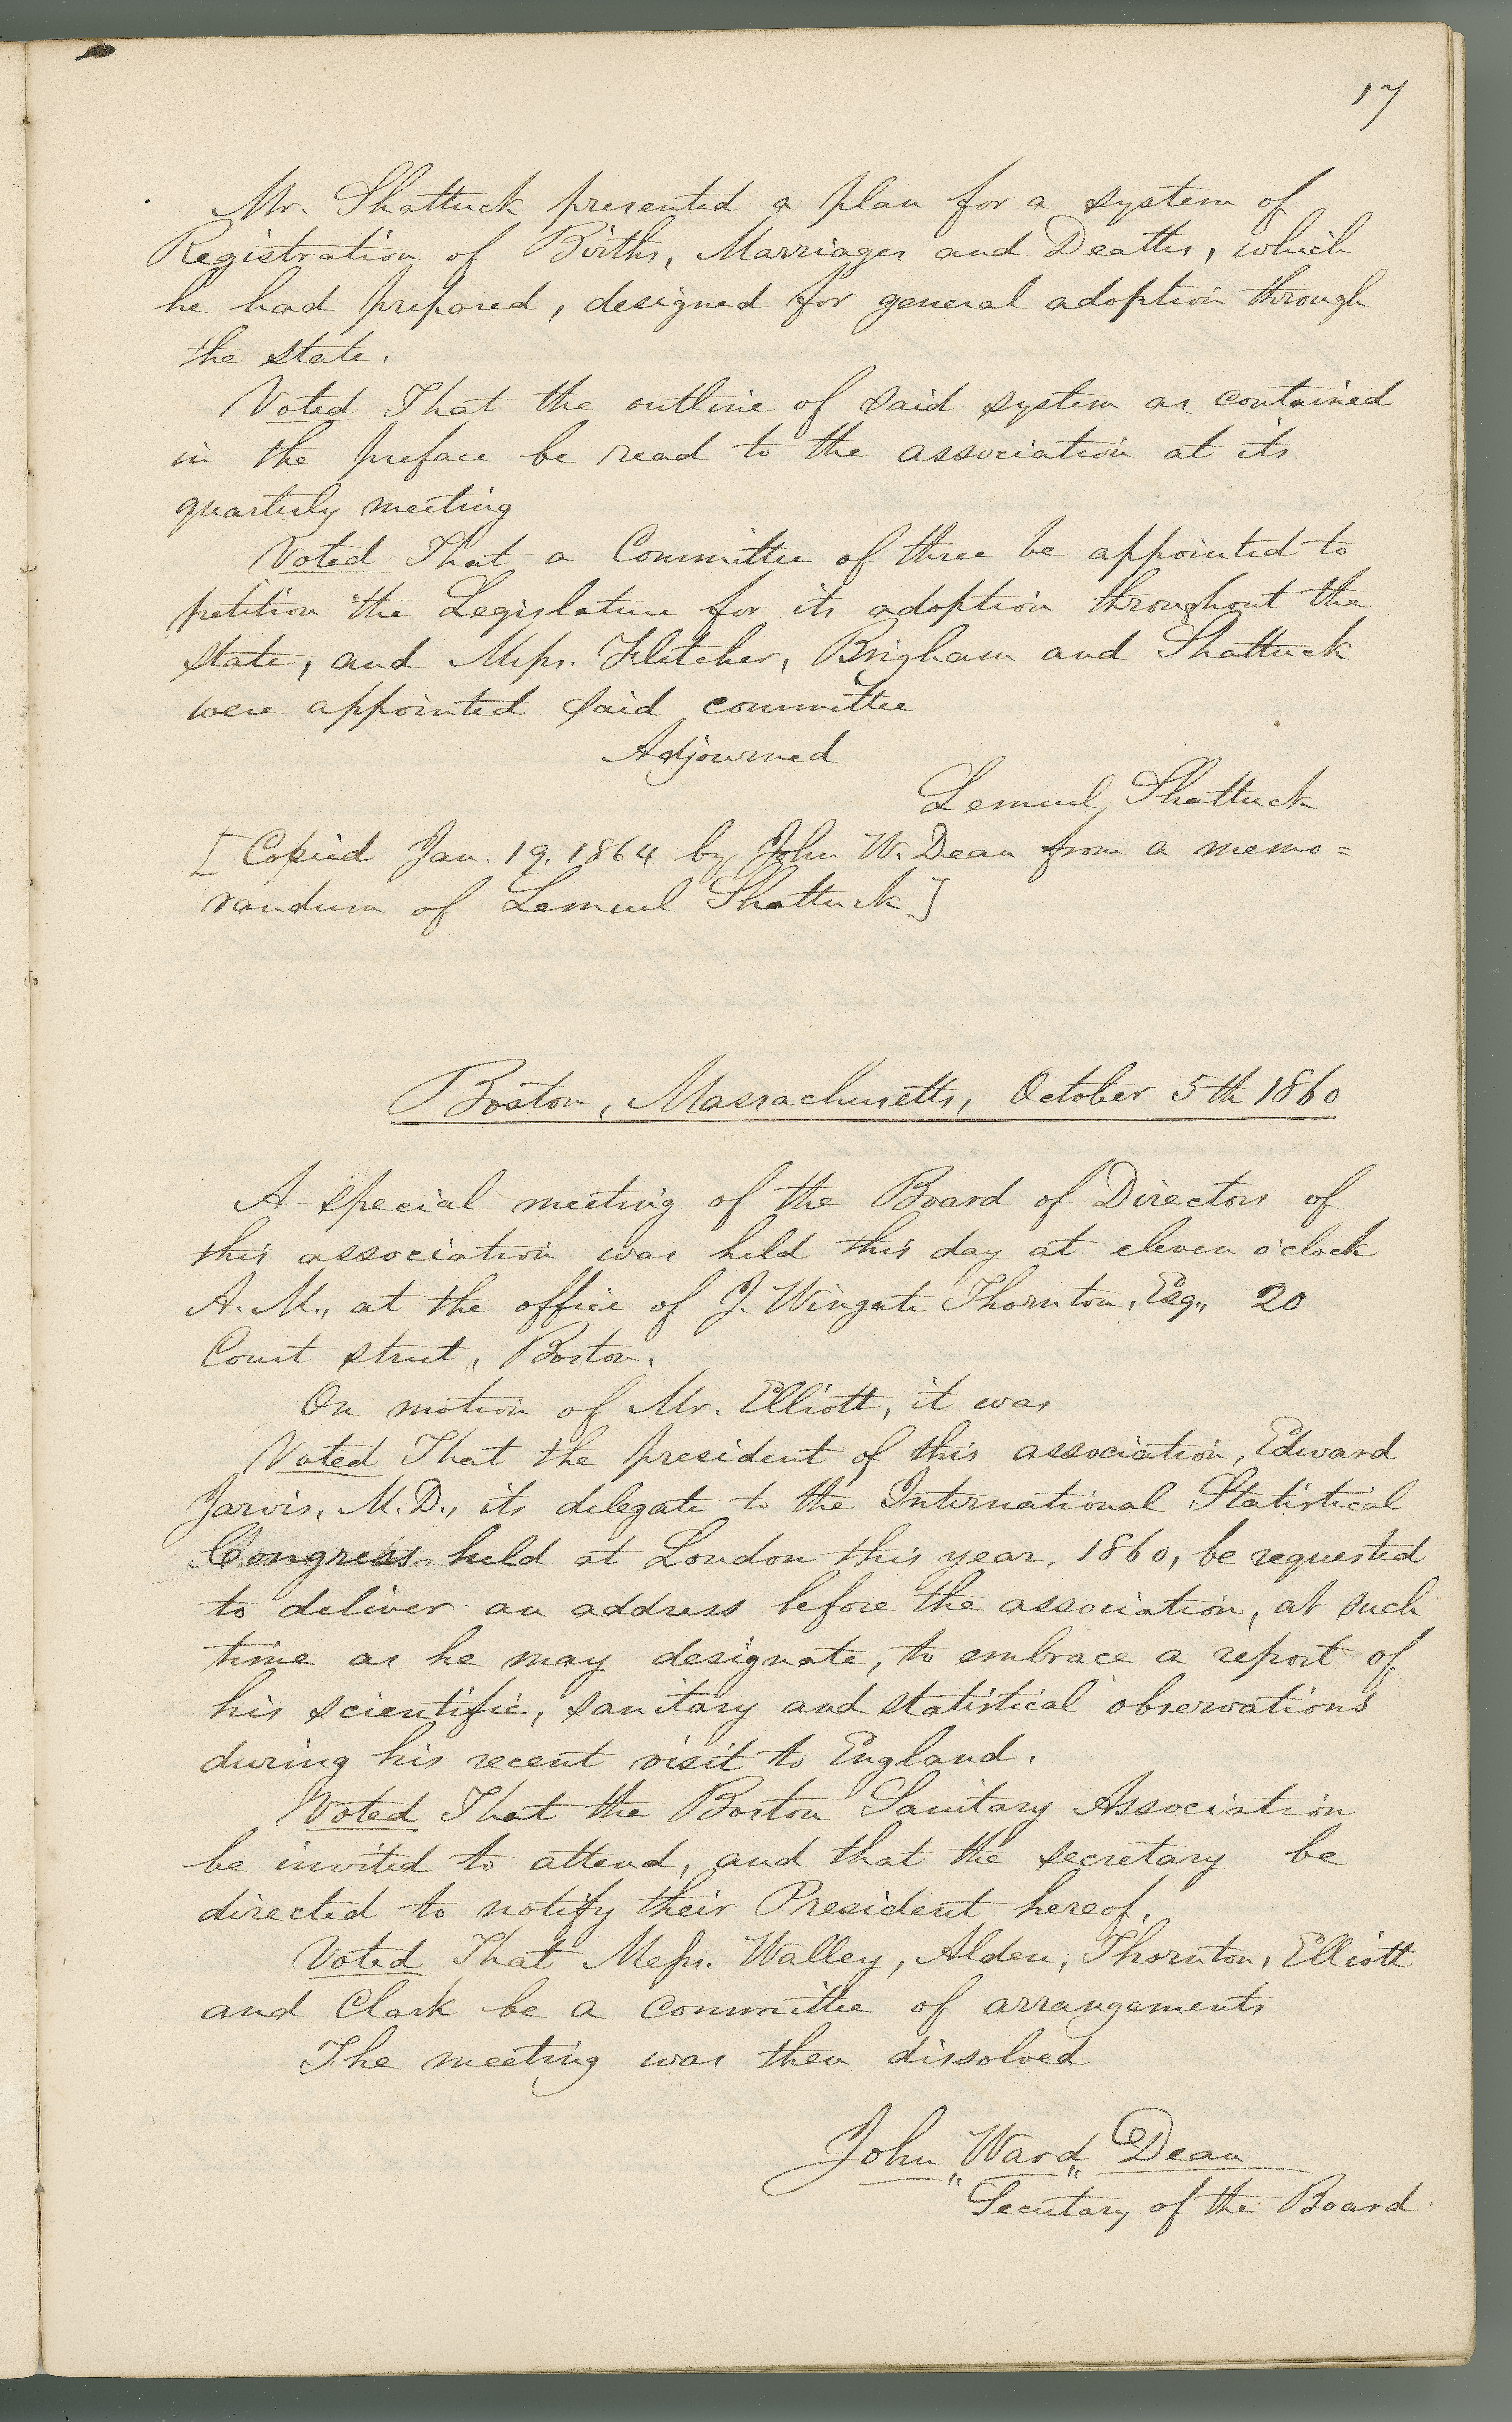 17
Mr. Shattuck presented a plan for a system of
Registration of Births, Marriages and Deaths, which
he had prepared, designed for general adoption through
the state.
Voted That the outline of said system as contained
in the preface be read to the association at its
quarterly meeting
Voted That a Committee of three be appointed to
petition the Legislature for its adoption throughout the
state, and Messrs. Fletcher, Brigham and Shattuck
were appointed said committee
Adjourned
Lemuel Shattuck
[Copied Jan. 19. 1864 by John W. Dean from a memo=
randum of Lemuel Shattuck]
Boston, Massachusetts, October 5th 1860
A special meeting of the Board of Directors of
this association was held this day at eleven o'clock
A. M., at the office of J. Wingate Thornton, Esq., 20
Court street, Boston.
On motion of Mr. Elliott, it was
Voted That the president of this association, Edward
Jarvis, M.D., its delegate to the International Statistical
Congress held at London this year, 1860, be requested
to deliver an address before the association, at such
time as he may designate, to embrace a report of
his scientific, sanitary and statistical observations
during his recent visit to England.
Voted That the Boston Sanitary Association
be invited to attend, and that the secretary be
directed to notify their President hereof.
Voted That Messrs. Walley, Alden, Thornton, Elliott
and Clark be a committee of arrangements
The meeting was then dissolved
John Ward Dean
Secretary of the Board.